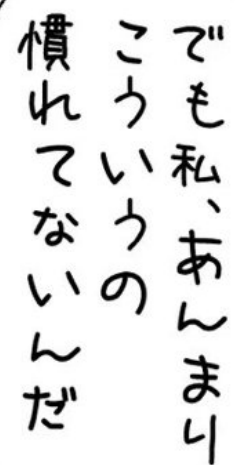 でも私、あんまり
こういうの
慣れてないんだ